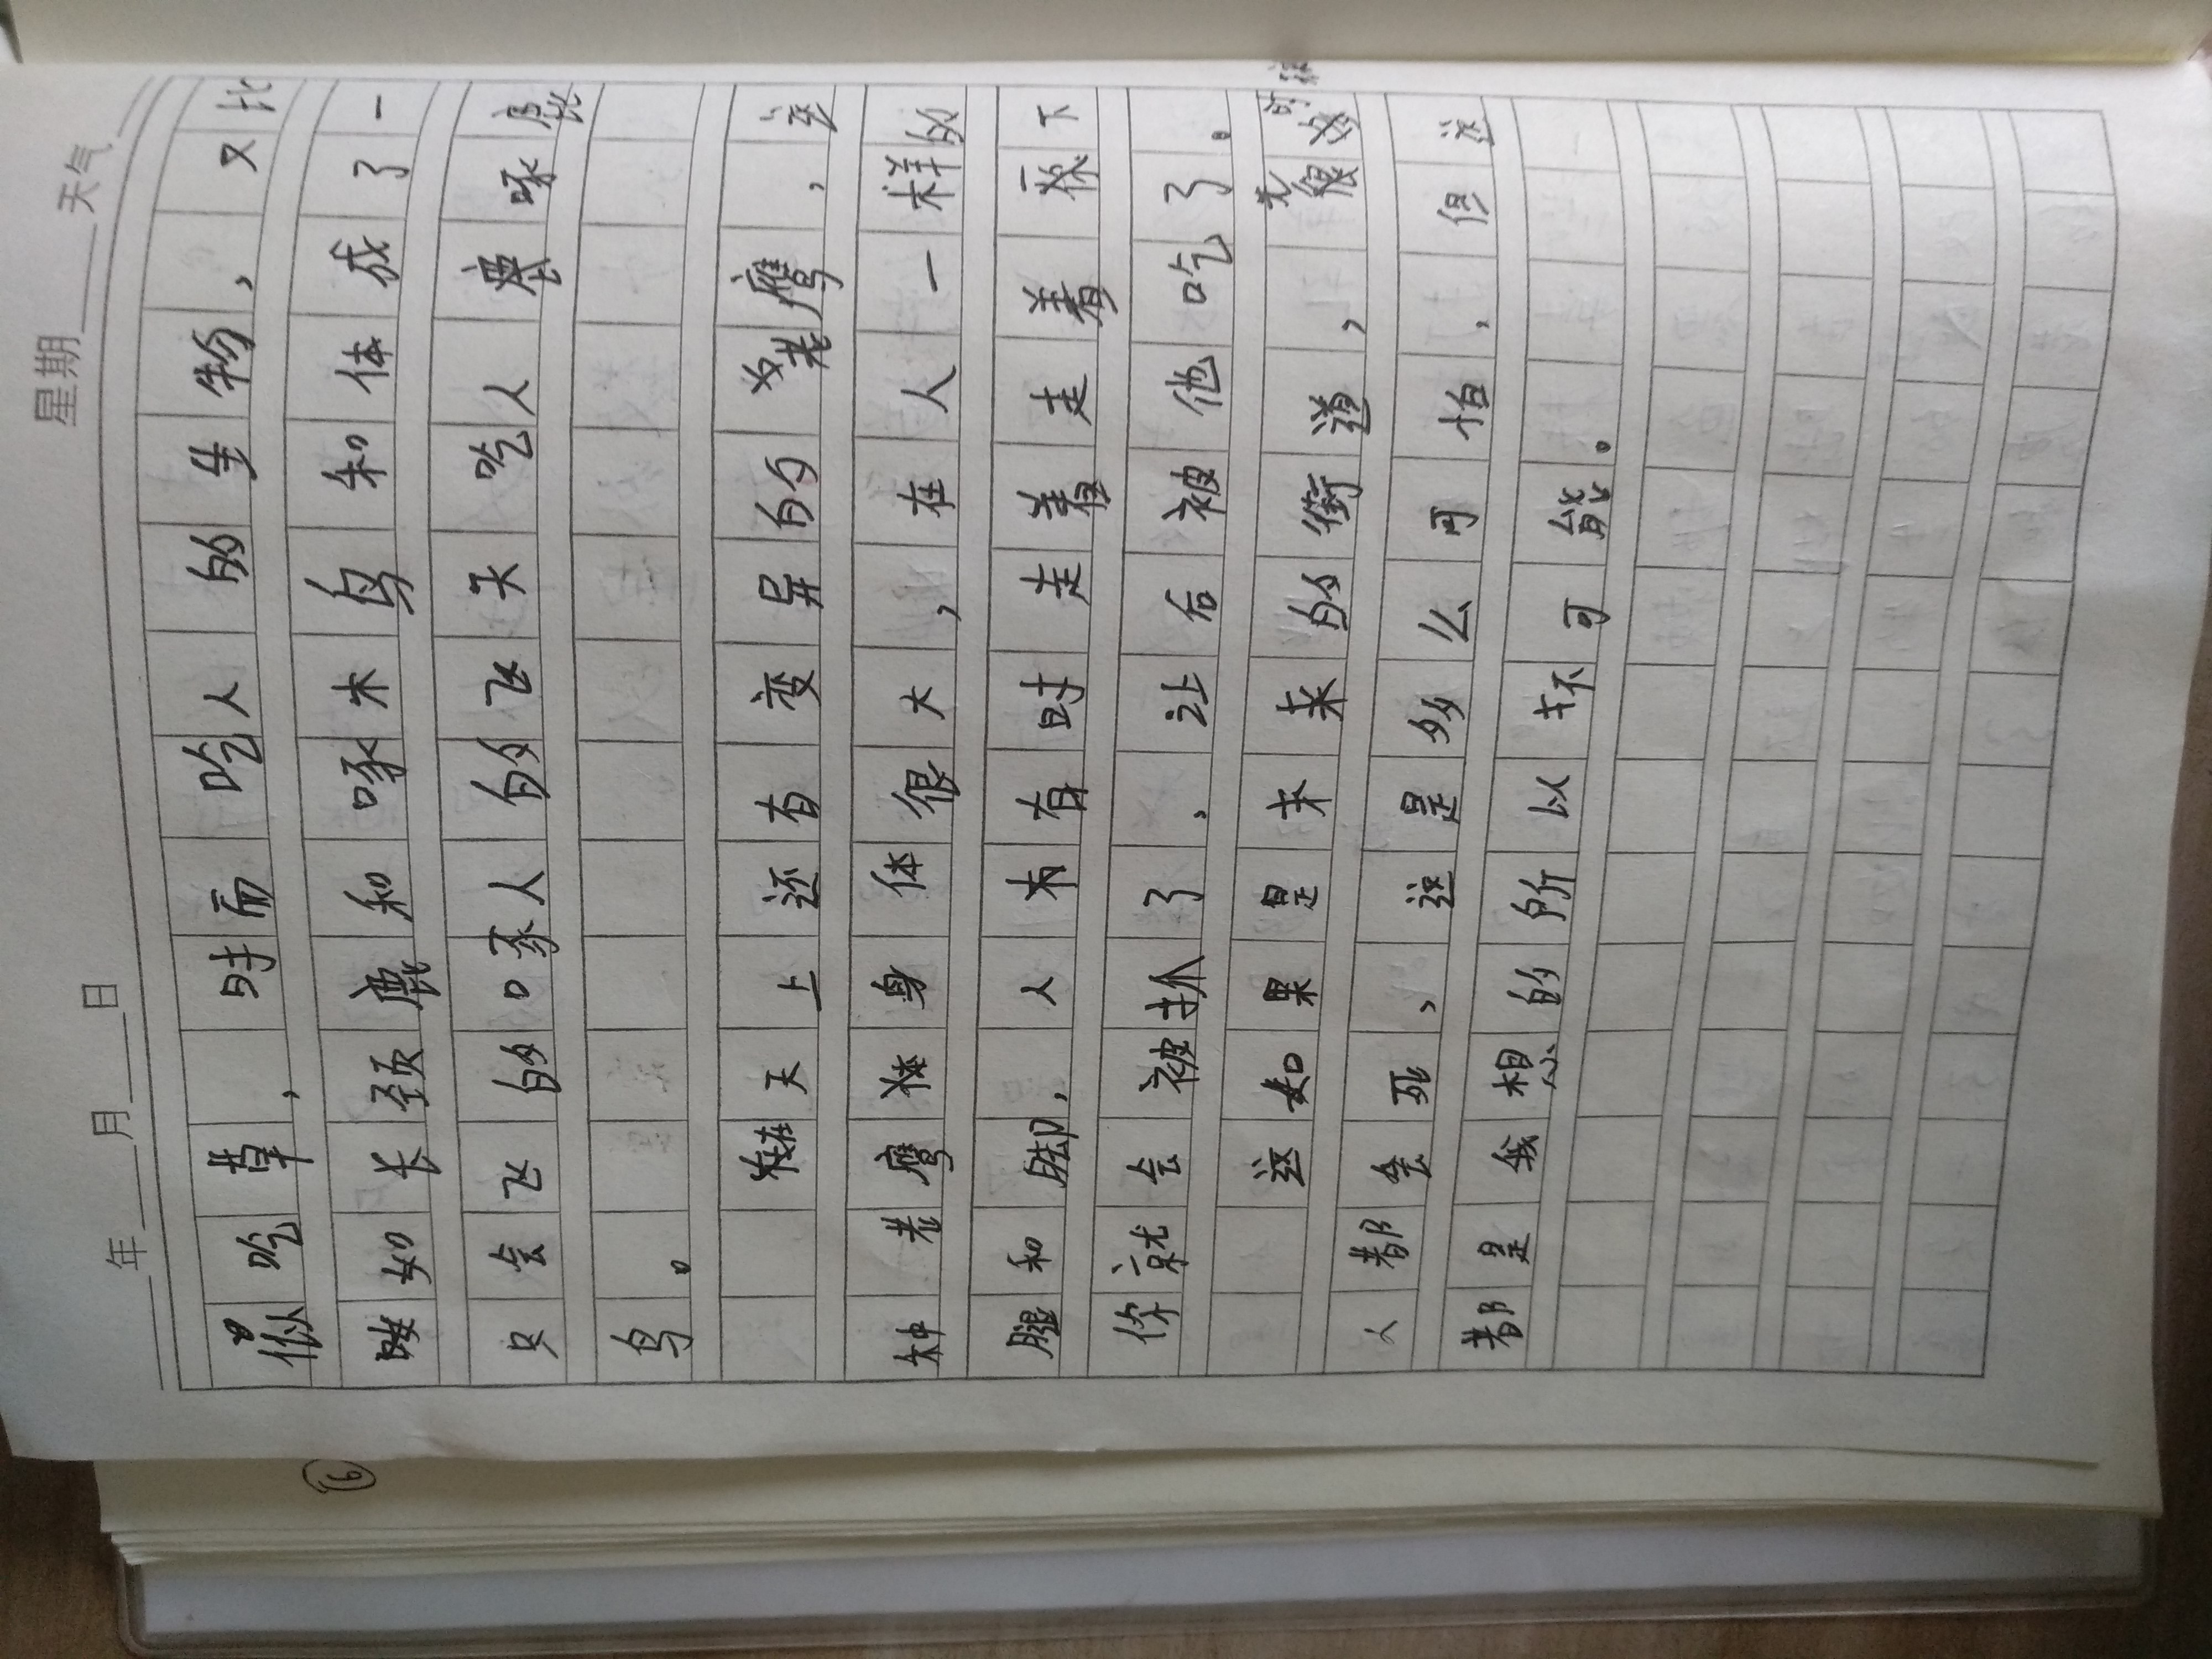 年 月 日 星期 天气
似吃草,时而吃人的生物,又比
如长颈鹿和啄木鸟和体成了一
只会飞的啄人的飞天吃人鹿啄
鸟。
在天上还有变异的老鹰,这
种老鹰身体很大,在人一样的
腿和脚,人有时走着走着一下
你就会被抓了,让后被他吃了。
这如果是未来的街道,
人都会死,这是多么可怕,但这
都是我想的所以不可能。